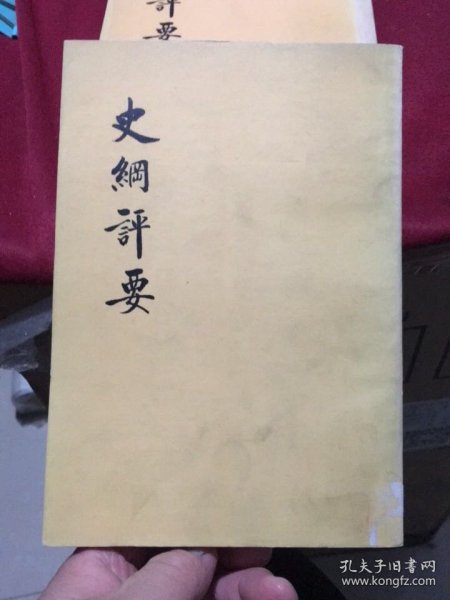 評要
史綱評要
孔夫子旧书网
www.kongfz.com